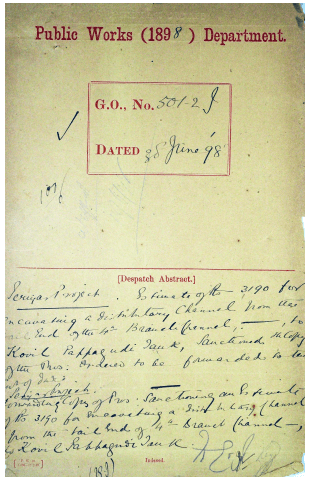 Public Works (1898) Department.
G.O., No. 501-2 I
DATED 28 June '98
[Despatch Abstract.]
Periyar Project. Estimate of Rs 3190 for
excavating a distributary Channel from the
tail End of the 4th Branch channel, to
Kovil Pappagudi Tank, Sanctioned & Copy
of the Pros. Ordered to be forwarded to
of
Project.
Forwarding Copy of Pros. Sanctioning an Estimate
of Rs 3190 for excavating a distributary channel
from the tail End of 4th Branch channel,
to Kovil Pappagudi Tank.
Indexed.